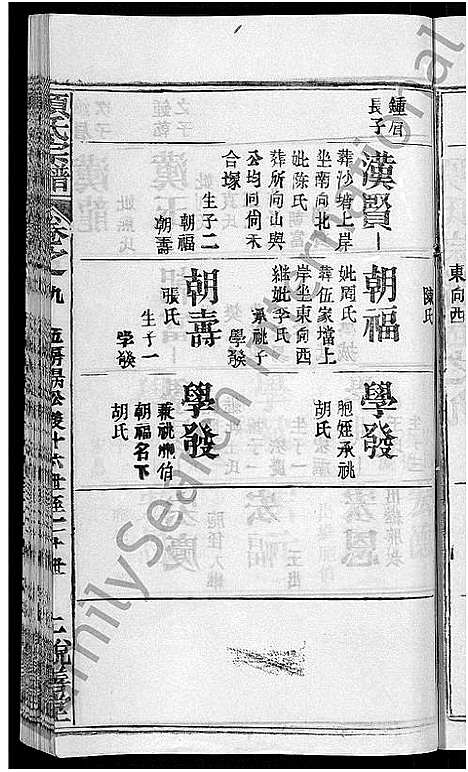 陳氏
東向西
鍾眉
長子
漢賢
葬沙塘上岸
坐南向北
妣陳氏
葬所向山與
公均同倘禾
合塚
生子二
朝福
朝壽
朝福
妣周氏
葬伍家壋上
岸坐東向西
繼妣李氏
承祧子
學發
朝壽
張氏
生子一
學發
學發
胞姪承祧
胡氏
學發
兼祧胞伯
朝福名下
胡氏
項氏宗譜
卷之九
五房昺公後十六世至二十世
上
悅善堂
FamilySearch International